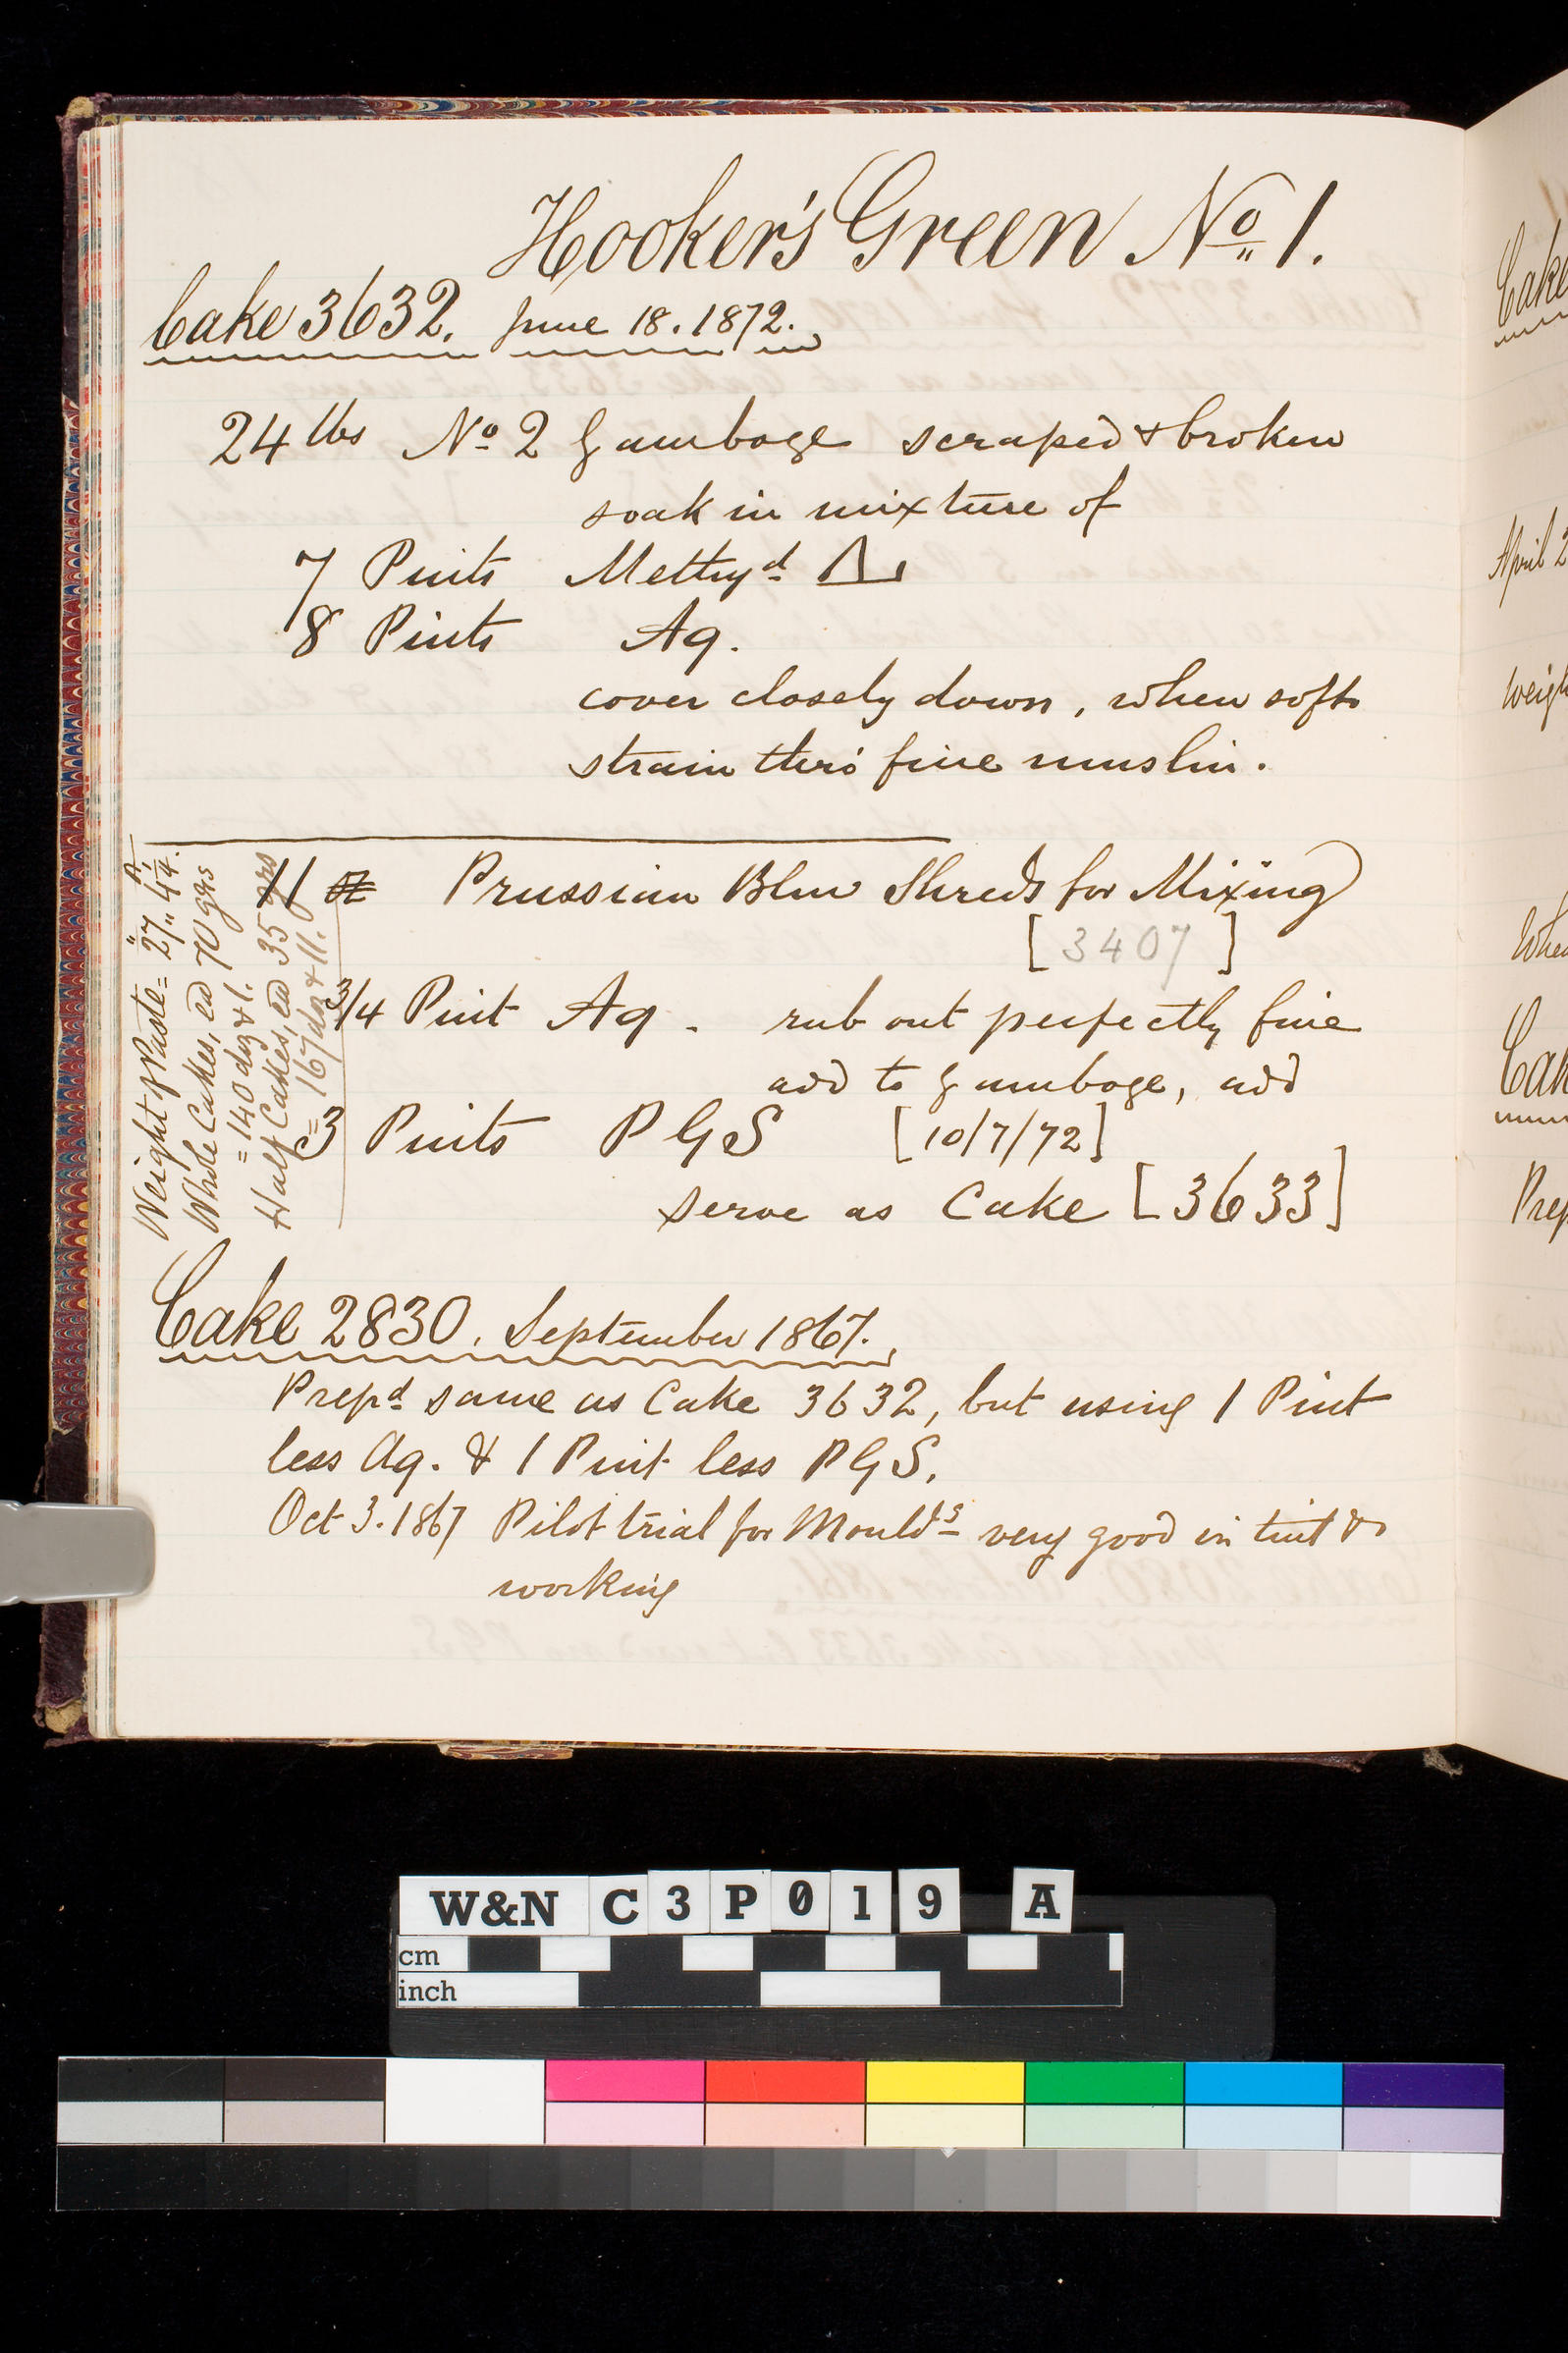 Hooker's Green No. 1.
Cake 3632. June 18. 1872.
24 lbs No 2 Gamboge scraped & broken
soak in mixture of
7 Pints Methyd
8 Pints Aq.
cover closely down, when soft
strain thro' fine muslin.
11 Prussian Blue Shreds for Mixing
[3407]
3/4 Pint Aq. rub out perfectly fine
add to Gamboge, add
3 Pints PGS [10/7/72]
serve as Cake [3633]
Weight of Paste = 27 " 4 1/4.
Whole Cakes, ea 70 grs
= 140 doz & 1.
Half Cakes, ea 35 grs
= 167 doz & 11.
Cake 2830. September 1867.
Prepd same as Cake 3632, but using 1 Pint
less Aq. & 1 Pint less PGS.
Oct 3. 1867 Pilot trial for Moulds very good in tint &
working
Cake
April 2
Weigh
Whe
Cak
Prep
W&N C3P019 A
cm
inch